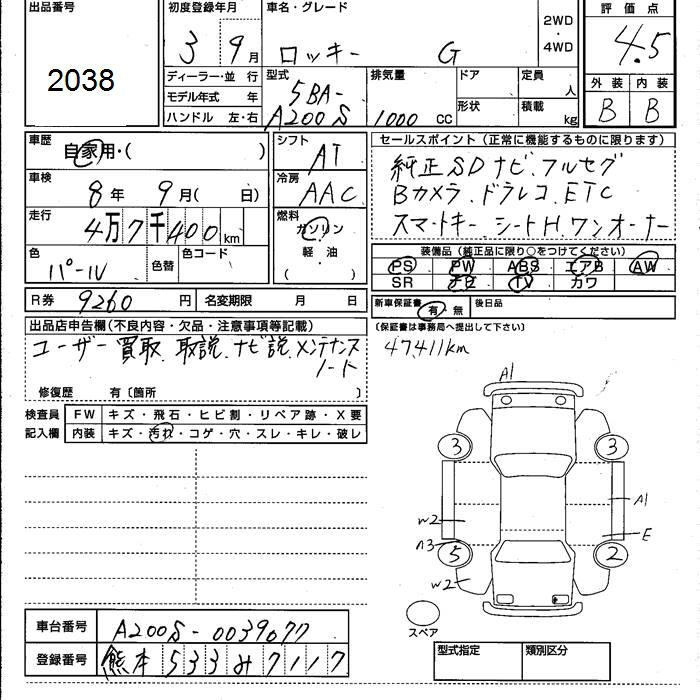 出品番号
2038
初度登録年月
3 9月
車名・グレード
ロッキー G
2WD
・
4WD
評価点
4.5
外装 内装
B B
ディーラー・並 行
モデル年式 年
ハンドル 左・右
型式
5BA-
A200S
排気量
1000 CC
ドア
形状
定員
人
積載
kg
車歴
自家用・( )
車検
8年 9月( 日)
走行
4万7千400km
色
パール
色替
色コード
シフト
AT
冷房
AAC
燃料
ガソリン
・
軽油
( )
セールスポイント(正常に機能するものに限ります)
純正SDナビ、フルセグ
Bカメラ、ドラレコ、ETC
スマートキー、シートH、ワンオーナー
装備品(純正品に限り○をつけてください)
PS PW ABS エアB AW
SR ナビ TV カワ
R券 9260円
名変期限 月 日
新車保証書 有・無
後日品
(保証書は事務局へ提出して下さい)
出品店申告欄(不良内容・欠品・注意事項等記載)
ユーザー買取、取説、ナビ説、メンテナンス
ノート
修復歴 有〔箇所 〕
47,411km
検査員
記入欄
FW キズ・飛石・ヒビ割・リペア跡・X要
内装 キズ・汚れ・コゲ・穴・スレ・キレ・破レ
A1
3 3
A1
W2
E
A3
5 2
W2
スペア
車台番号 A200S-0039077
登録番号 熊本 533 み 7117
型式指定
類別区分